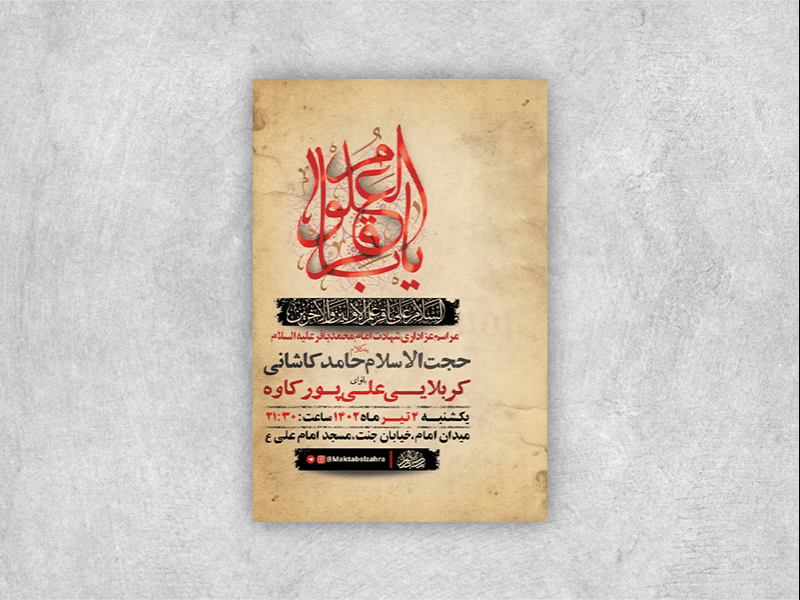 یا باقر العلوم
السلام علی باقر علم الاولین والآخرین
مراسم عزاداری شهادت امام محمد باقر علیه السلام
به کلام
حجت الاسلام حامد کاشانی
بانوای
کربلایی علی پور کاوه
یکشنبه ۴ تیر ماه ۱۴۰۲ ساعت: ۲۱:۳۰
میدان امام، خیابان جنت، مسجد امام علی ع
@Maktabolzahra